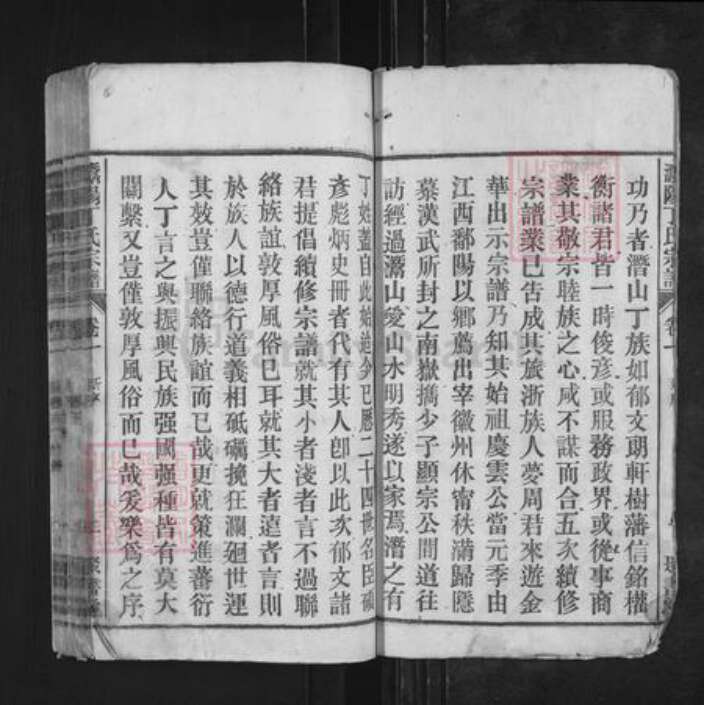 功乃者潛山丁族如郁文朗軒樹藩信銘權
衡諸君皆一時俊彥或服務政界或從事商
業其敬宗睦族之心咸不謀而合五次續修
宗譜業已告成其旅浙族人夢周君來遊金
華出示宗譜乃知其始祖慶雲公當元季由
江西鄱陽以鄉薦出宰徽州休甯秩滿歸隱
慕漢武所封之南嶽攜少子顯宗公間道往
訪經過潛山愛山水明秀遂以家焉潛之有
丁姓蓋自此始迄今已歷二十四世名臣碩
彥彪炳史冊者代有其人卽以此次郁文諸
君提倡續修宗譜就其小者淺者言不過聯
絡族誼敦厚風俗已耳就其大者遠者言則
於族人以德行道義相砥礪挽狂瀾廻世運
其效豈僅聯絡族誼而已哉更就策進蕃衍
人丁言之與振興民族强國强種皆有莫大
關繫又豈僅敦厚風俗而已哉爰樂爲之序
丁氏宗譜
卷一